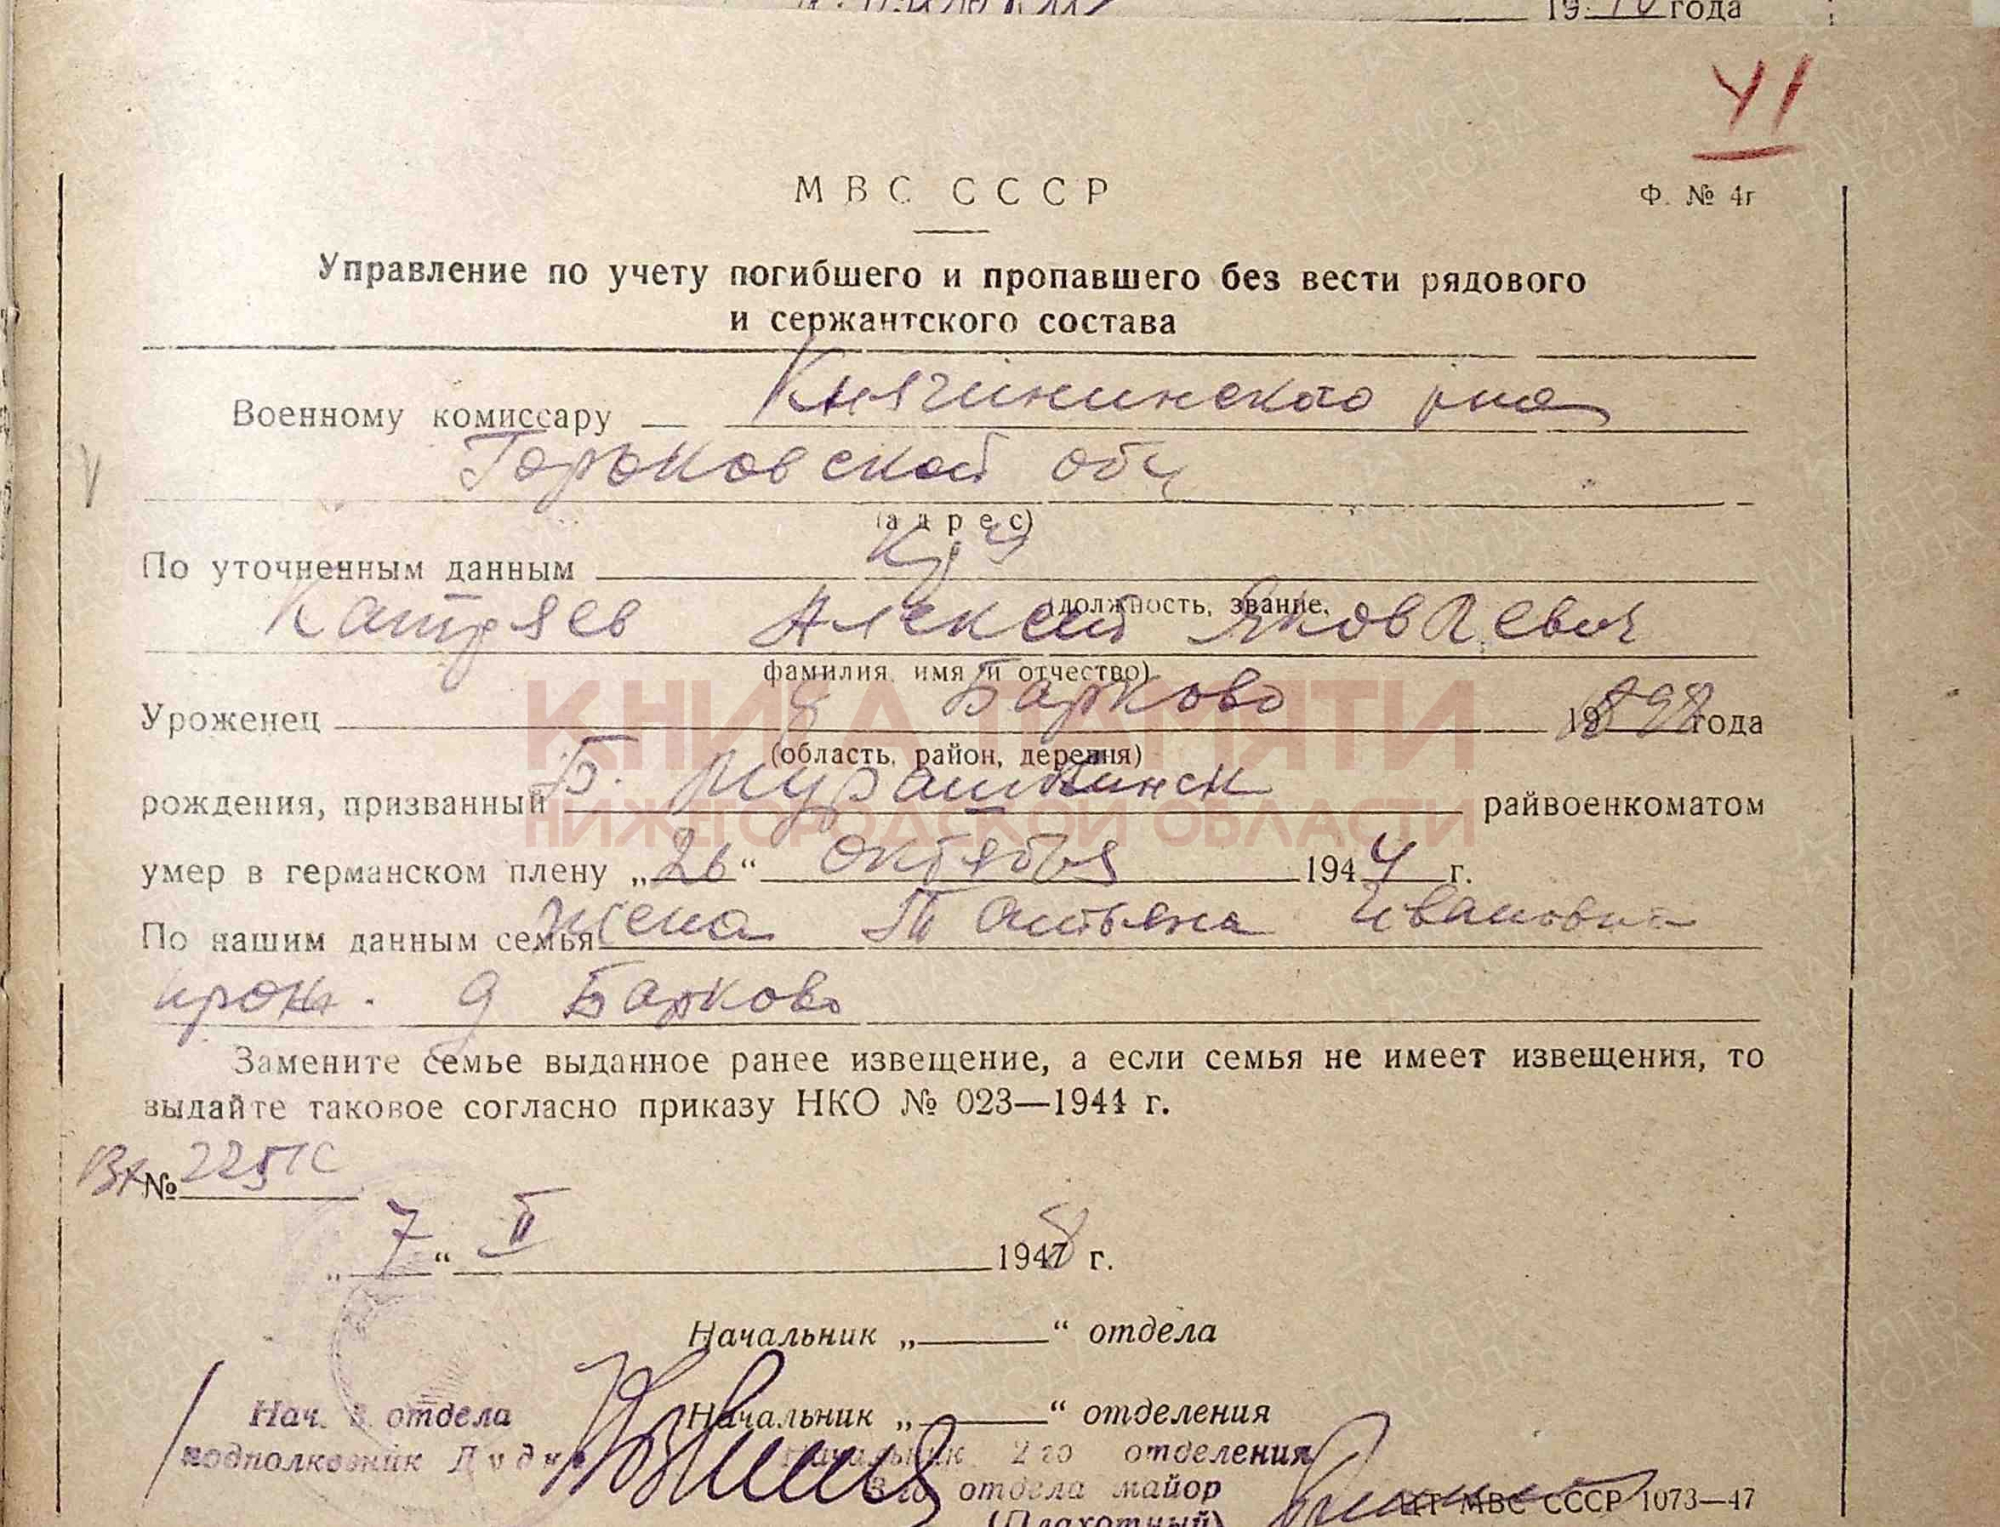 19 года
VI
МВС СССР
Ф. № 4г
Управление по учету погибшего и пропавшего без вести рядового
и сержантского состава
Военному комиссару Княгининского
Горьковской обл
(адрес)
По уточненным данным
(должность, звание,
Катряев Алексей Яковлевич
фамилия, имя и отчество)
Уроженец д Барково 1898 года
(область, район, деревня)
рождения, призванный Б. Мурашкинск райвоенкоматом
умер в германском плену „26“ октября 1944 г.
По нашим данным семья жена Татьяна Ивановна
прож. д Барково
Замените семье выданное ранее извещение, а если семья не имеет извещения, то
выдайте таковое согласно приказу НКО № 023—1944 г.
Вх № 2251с
„7“ II 1948 г.
Начальник „ “ отдела
Нач. 3 отдела
Начальник „ “ отделения
подполковник
начальник 2го отделения
3го отдела майор
(Плахотный)
ЦТ МВС СССР 1073—47
КНИГА ПАМЯТИ
НИЖЕГОРОДСКОЙ ОБЛАСТИ
ПАМЯТЬ НАРОДА